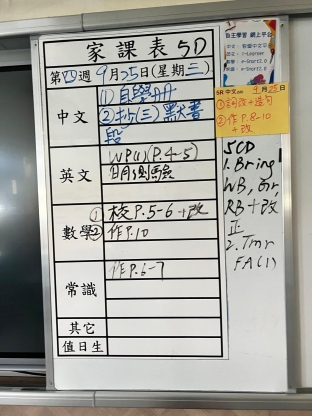 家課表5D
第四週9月25日(星期三)
中文
(1)自學冊
(2)抄(三)默書
段
英文
WP(1)(P.4-5)
明測驗
數學
① 校P.5-6+改
② 作P.10
常識
作P.6-7
其它
值日生
自主學習 網上平台
5R 中文 9月25日
①詞改+造句
②作P.8-10
+改
5CD
1. Bring
WB, Gr,
RB+改
正
2. Tmr
FA(1)